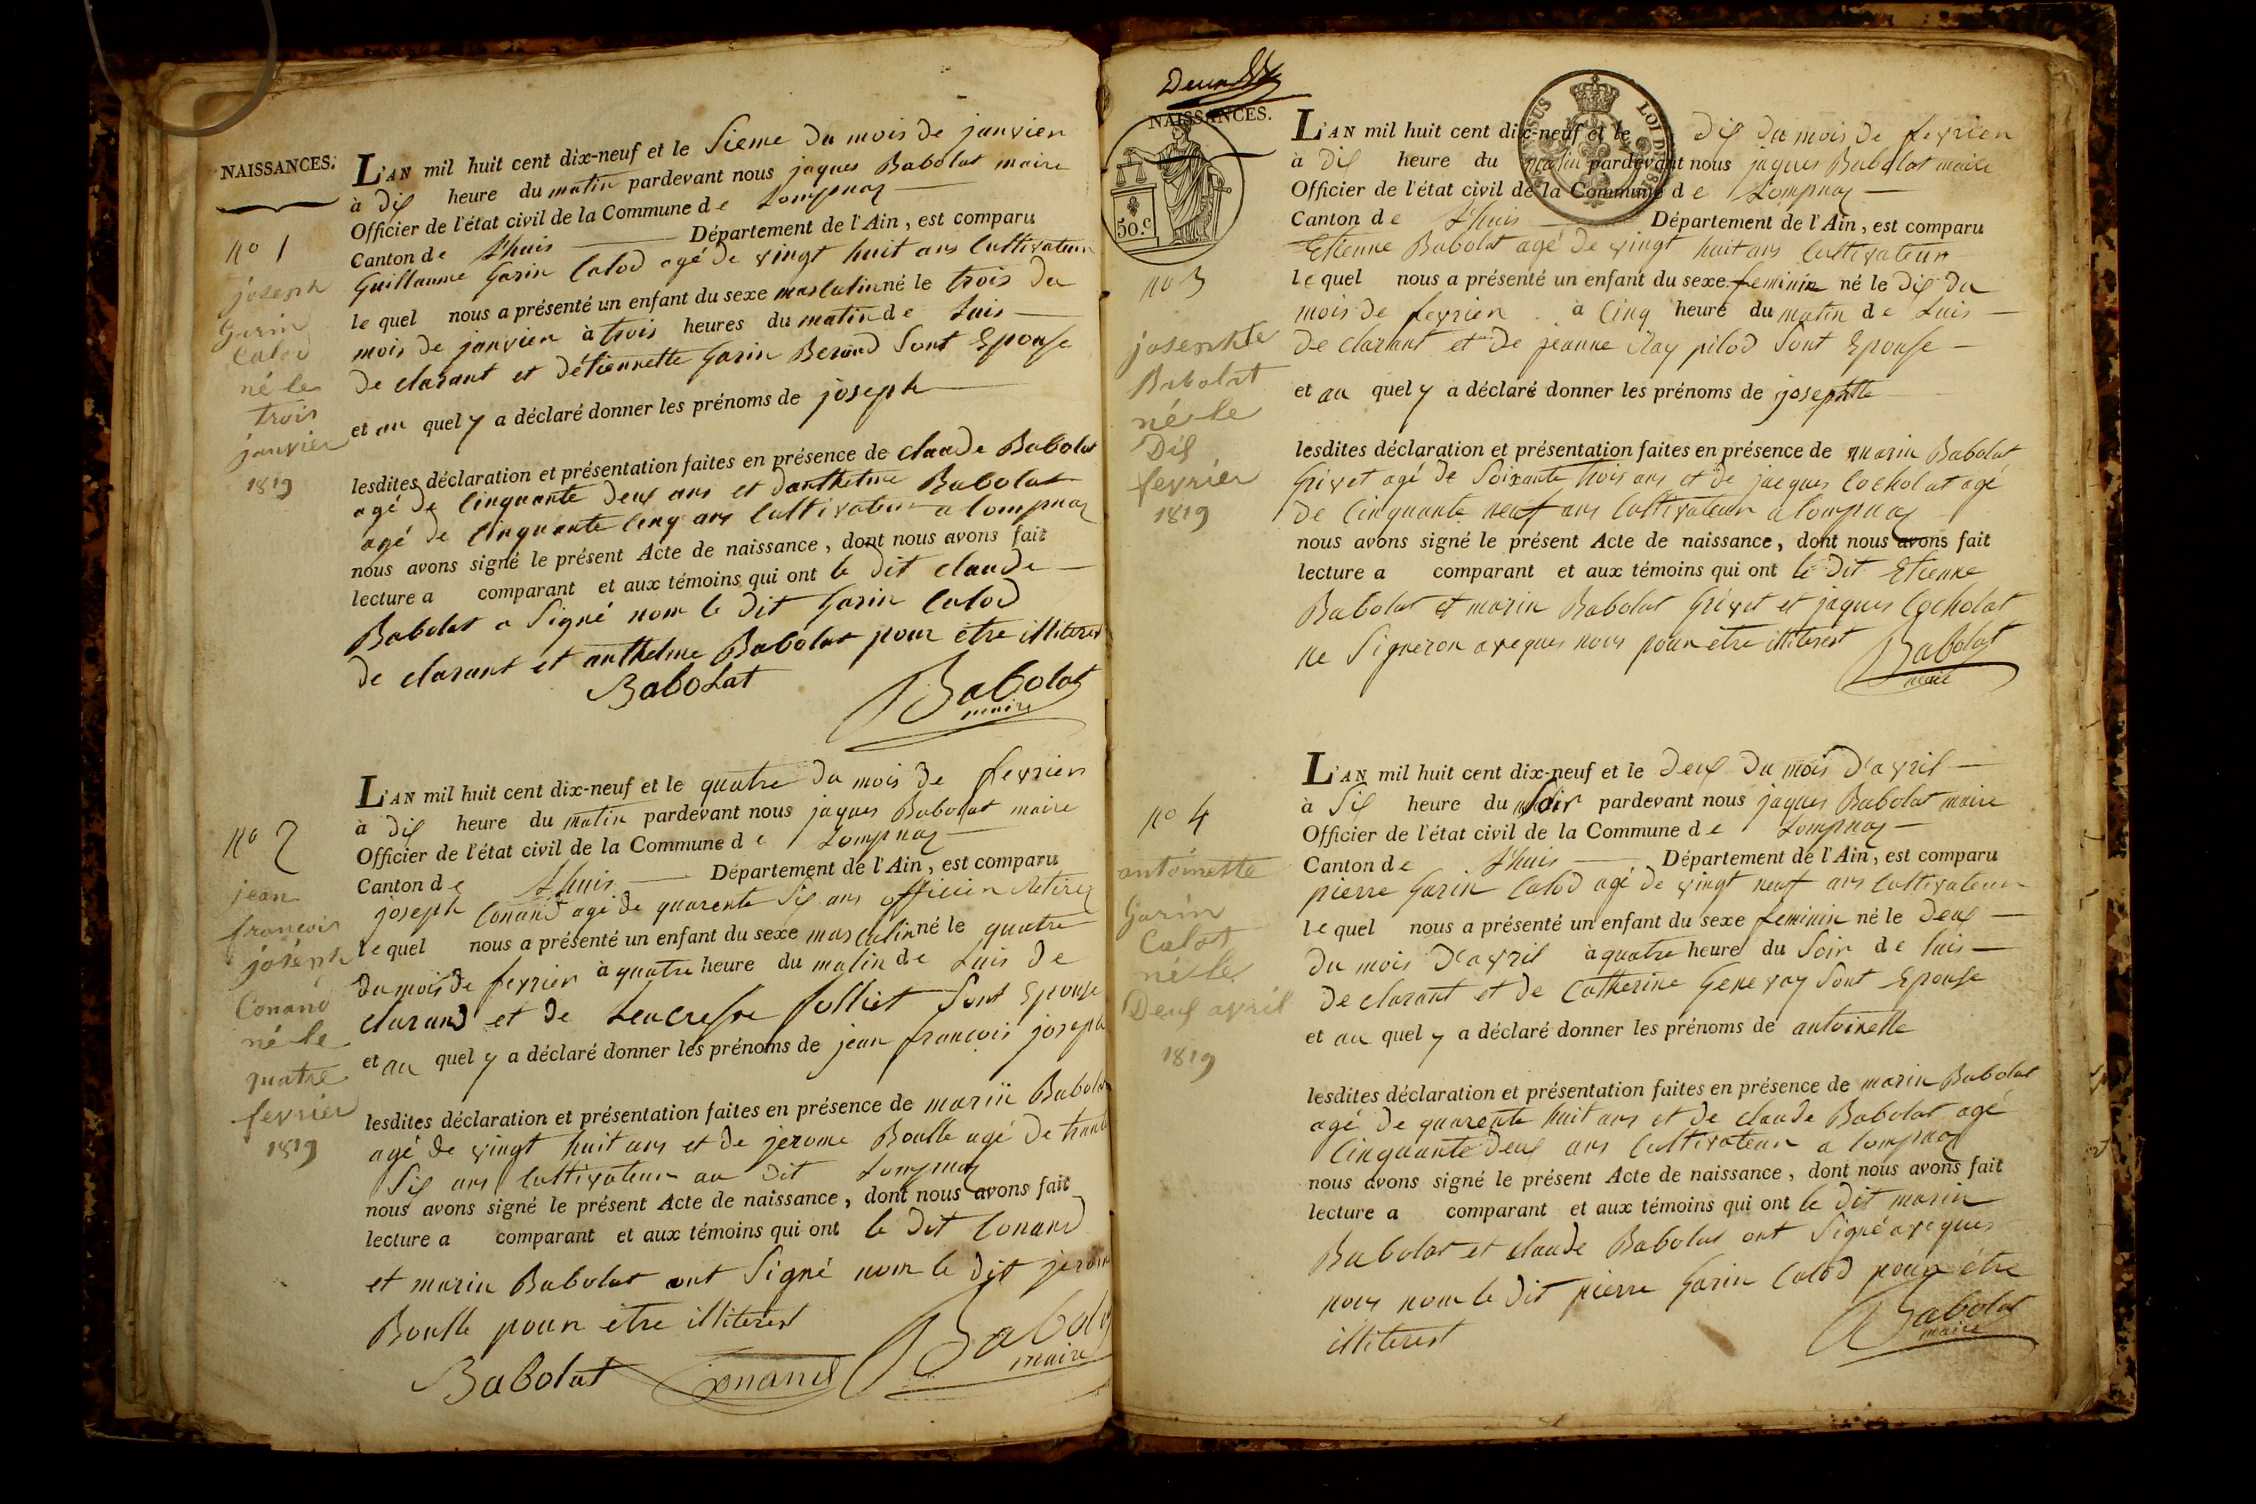 NAISSANCES.
L'AN mil huit cent dix-neuf et le Sieme du mois de janvier
à dix heure du matin pardevant nous jaques Babolat maire
Officier de l'état civil de la Commune de Lompnaz
Canton de Lhuis Département de l'Ain, est comparu
Guillaume Garin Calod agé de vingt huit ans Cultivateur
lequel nous a présenté un enfant du sexe masculin né le trois du
mois de janvier à trois heures du matin de Luis
de clarant et détiennette Garin Berard Sont Epouse
et au quel y a déclaré donner les prénoms de joseph
lesdites déclaration et présentation faites en présence de claude Babolat
agé de Cinquante deux ans et danthelme Babolat
agé de Cinquante Cinq ans Cultivateur a lompnaz
nous avons signé le présent Acte de naissance, dont nous avons fait
lecture a comparant et aux témoins qui ont le dit claude
Babolat a Signé nom le dit Garin Calod
de clarant et anthelme Babolat pour etre illiterest
Babolat
Babolat
maire
no 1
joseph
Garin
Calod
né le
trois
janvier
1819
L'AN mil huit cent dix-neuf et le quatre du mois de fevrier
à dix heure du matin pardevant nous jaques Babolat maire
Officier de l'état civil de la Commune de Lompnaz
Canton de Lhuis Département de l'Ain, est comparu
joseph Conand agé de quarente Six ans officier Retirez
lequel nous a présenté un enfant du sexe masculin né le quatre
du mois de fevrier à quatre heure du matin de Luis de
clarand et de Leucresse folliet Sont Epouse
et au quel y a déclaré donner les prénoms de jean francois joseph
lesdites déclaration et présentation faites en présence de marin Babolat
agé de vingt huit ans et de jerome Boulle agé de trante
Six ans Cultivateur au dit Lompnaz
nous avons signé le présent Acte de naissance, dont nous avons fait
lecture a comparant et aux témoins qui ont le dit Conand
et marin Babolat ont Signé nom le dit jerome
Boulle pour etre illiterest
Babolat Conand Babolat
maire
no 2
jean
francois
joseph
Conand
né le
quatre
fevrier
1819
NAISSANCES.
50 c
LOI DE
L'AN mil huit cent dix-neuf et le dix du mois de fevrier
à dix heure du matin pardevant nous jaques Babolat maire
Officier de l'état civil de la Commune de Lompnaz
Canton de Lhuis Département de l'Ain, est comparu
Etienne Babolat agé de vingt huit ans Cultivateur
lequel nous a présenté un enfant du sexe feminin né le dix du
mois de fevrier à Cinq heure du matin de Luis
de clarant et de jeanne Ray pilod Sont Epouse
et au quel y a déclaré donner les prénoms de josephte
lesdites déclaration et présentation faites en présence de marin Babolat
Grivet agé de Soixante trois ans et de jacques Cocholat agé
de Cinquante neuf ans Cultivateur a lompnaz
nous avons signé le présent Acte de naissance, dont nous avons fait
lecture a comparant et aux témoins qui ont le dit Etienne
Babolat et marin Babolat Grivet et jaques Cocholat
ne Signeron aveques nous pour etre illiterest
Babolat
maire
no 3
josephte
Babolat
né le
Dix
fevrier
1819
L'AN mil huit cent dix-neuf et le deux du mois d'avril
à Six heure du Soir pardevant nous jaques Babolat maire
Officier de l'état civil de la Commune de Lompnaz
Canton de Lhuis Département de l'Ain, est comparu
pierre Garin Calod agé de vingt neuf ans Cultivateur
lequel nous a présenté un enfant du sexe feminin né le deux
du mois d'avril à quatre heure du Soir de luis
de clarant et de Catherine Genevay Sont Epouse
et au quel y a déclaré donner les prénoms de antoinette
lesdites déclaration et présentation faites en présence de marin Babolat
agé de quarente huit ans et de claude Babolat agé
Cinquante deux ans Cultivateur a lompnaz
nous avons signé le présent Acte de naissance, dont nous avons fait
lecture a comparant et aux témoins qui ont le dit marin
Babolat et claude Babolat ont Signé aveques
nous nom le dit pierre Garin Calod pour être
illiterest
Babolat
maire
no 4
antoinette
Garin
Calot
né le
Deux avril
1819